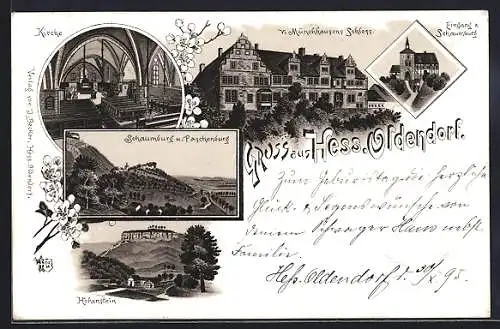 Kirche
v. Münchhausens Schloss.
Eingang z.
Schaumburg
Verlag von J. Hess. Oldendorf.
Schaumburg u. Paschenburg
Gruss aus Hess. Oldendorf.
Zum Geburtstag die herzliche
Glück- u. Segenswünsche von
deinem Schwager Hans nebst
Familie.
Hohenstein
Hess. Oldendorf d. 30/X 95.